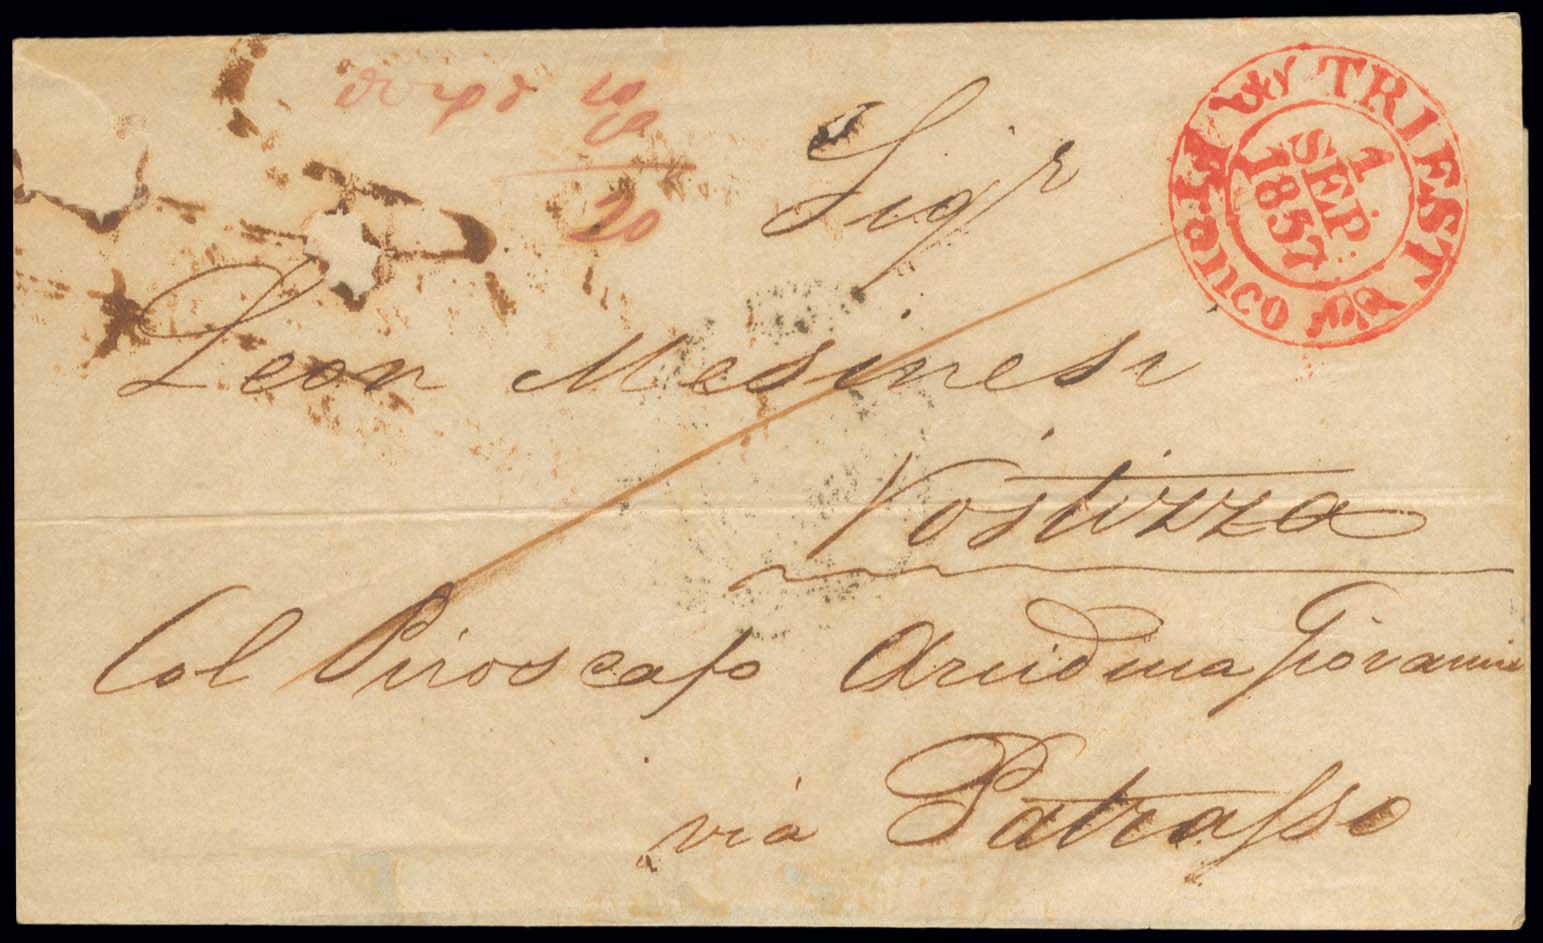 10
20
Sigr
Leon Mesinesi
Vostizza
Col Piroscafo Arciduca Giovanni
via Patrasso
TRIEST
Franco
1
SEP.
1857